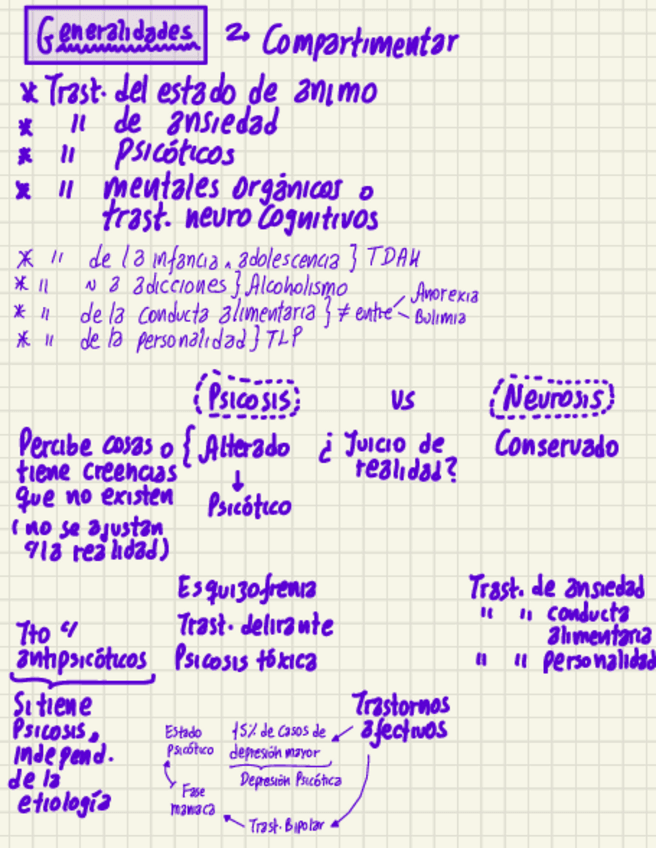 Generalidades 2. Compartimentar
* Trast. del estado de animo
* " de ansiedad
* " Psicóticos
* " mentales orgánicos o
trast. neurocognitivos
* " de la infancia, adolescencia } TDAH
* " a adicciones } Alcoholismo
* " de la conducta alimentaria } ≠ entre Anorexia
Bulimia
* " de la personalidad } TLP
Psicosis vs Neurosis
Percibe cosas o { Alterado ¿Juicio de Conservado
tiene creencias realidad?
que no existen ↓ Psicótico
(no se ajustan
a la realidad)
Esquizofrenia Trast. de ansiedad
Trast. delirante " " conducta
alimentaria
Tto
antipsicóticos Psicosis tóxica " " personalidad
Si tiene
Psicosis,
independ.
de la
etiología
Trastornos
afectivos
Estado
Psicótico
15% de casos de
depresión mayor
Depresión Psicótica
Fase
maniaca
Trast. Bipolar